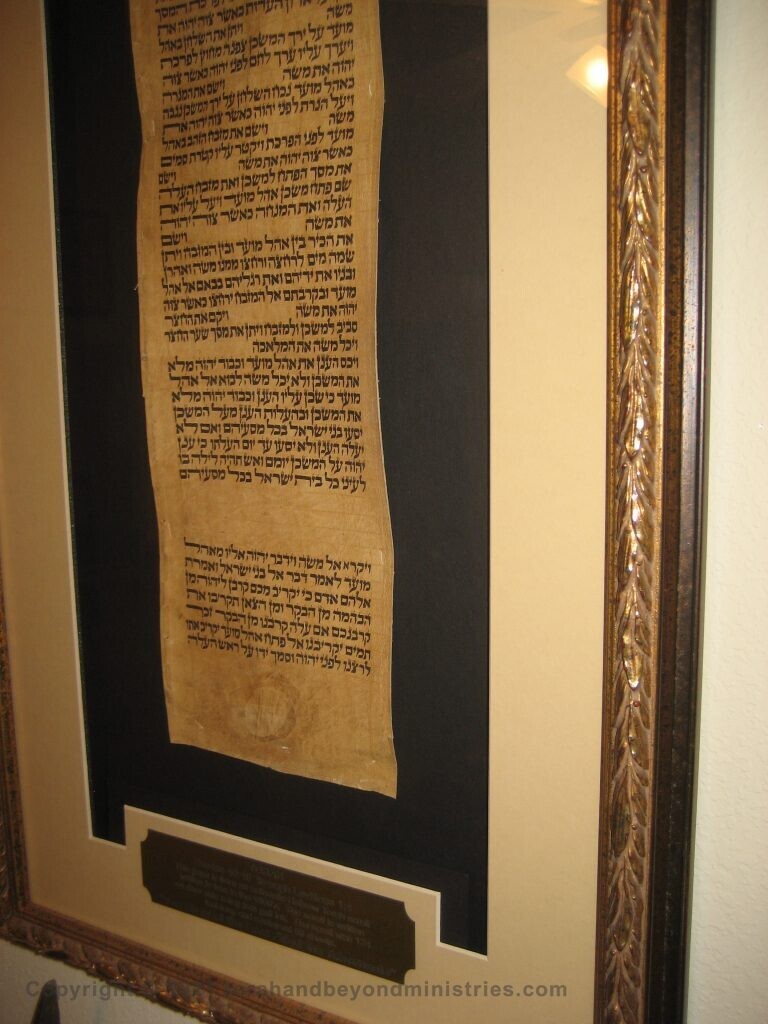 העדות כאשר צוה יהוה את
משה ויתן את השלחן באהל
מועד על ירך המשכן צפנה מחוץ לפרכת
ויערך עליו ערך לחם לפני יהוה כאשר צוה
יהוה את משה וישם את המנרה
באהל מועד נכח השלחן על ירך המשכן נגבה
ויעל הנרת לפני יהוה כאשר צוה יהוה את
משה וישם את מזבח הזהב באהל
מועד לפני הפרכת ויקטר עליו קטרת סמים
כאשר צוה יהוה את משה וישם
את מסך הפתח למשכן ואת מזבח העלה
שם פתח משכן אהל מועד ויעל עליו את
העלה ואת המנחה כאשר צוה יהוה
את משה וישם
את הכיר בין אהל מועד ובין המזבח ויתן
שמה מים לרחצה ורחצו ממנו משה ואהרן
ובניו את ידיהם ואת רגליהם בבאם אל אהל
מועד ובקרבתם אל המזבח ירחצו כאשר צוה
יהוה את משה ויקם את החצר
סביב למשכן ולמזבח ויתן את מסך שער החצר
ויכל משה את המלאכה
ויכס הענן את אהל מועד וכבוד יהוה מלא
את המשכן ולא יכל משה לבוא אל אהל
מועד כי שכן עליו הענן וכבוד יהוה מלא
את המשכן ובהעלות הענן מעל המשכן
יסעו בני ישראל בכל מסעיהם ואם לא
יעלה הענן ולא יסעו עד יום העלתו כי ענן
יהוה על המשכן יומם ואש תהיה לילה בו
לעיני כל בית ישראל בכל מסעיהם
ויקרא אל משה וידבר יהוה אליו מאהל
מועד לאמר דבר אל בני ישראל ואמרת
אלהם אדם כי יקריב מכם קרבן ליהוה מן
הבהמה מן הבקר ומן הצאן תקריבו את
קרבנכם אם עלה קרבנו מן הבקר זכר
תמים יקריבנו אל פתח אהל מועד יקריב אתו
לרצנו לפני יהוה וסמך ידו על ראש העלה